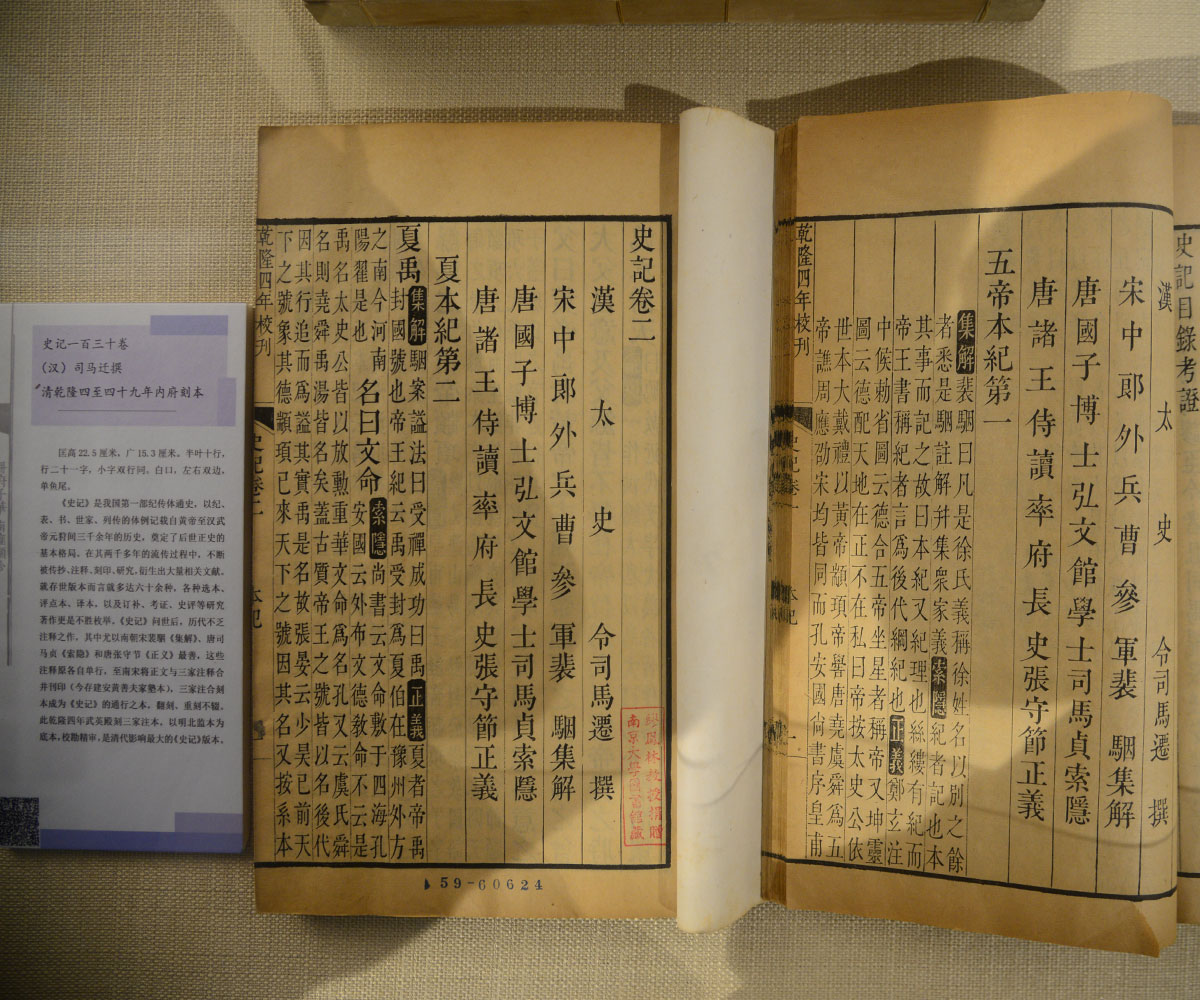 史记一百三十卷
（汉）司马迁撰
清乾隆四至四十九年内府刻本
匡高22.5厘米，广15.3厘米。半叶十行，
行二十一字，小字双行同，白口，左右双边，
单鱼尾。
《史记》是我国第一部纪传体通史，以纪、
表、书、世家、列传的体例记载自黄帝至汉武
帝元狩间三千余年的历史，奠定了后世正史的
基本格局。在其两千多年的流传过程中，不断
被传抄、注释、刻印、研究，衍生出大量相关文献。
就存世版本而言就多达六十余种，各种选本、
评点本、译本，以及订补、考证、史评等研究
著作更是不胜枚举。《史记》问世后，历代不乏
注释之作，其中尤以南朝宋裴駰《集解》、唐司
马贞《索隐》和唐张守节《正义》最善，这些
注释原各自单行，至南宋将正文与三家注释合
并刊印（今存建安黄善夫家塾本），三家注合刻
本成为《史记》的通行之本，翻刻、重刻不辍。
此乾隆四年武英殿刻三家注本，以明北监本为
底本，校勘精审，是清代影响最大的《史记》版本。
史記目錄考證
漢太史令司馬遷撰
宋中郎外兵曹參軍裴駰集解
唐國子博士弘文館學士司馬貞索隱
唐諸王侍讀率府長史張守節正義
五帝本紀第一
集解裴駰曰凡是徐氏義稱徐姓名以別之餘
者悉是駰註解幷集衆家義索隱紀者記也本
其事而記之故曰本紀又紀理也絲縷有紀而
帝王書稱紀者言爲後代綱紀也正義鄭玄注
中候勑省圖云德合五帝坐星者稱帝又坤靈
圖云德配天地在正不在私曰帝按太史公依
世本大戴禮以黃帝顓頊帝嚳唐堯虞舜爲五
帝譙周應劭宋均皆同而孔安國尙書序皇甫
乾隆四年校刊
史記卷一
本紀
一
史記卷二
漢太史令司馬遷撰
宋中郎外兵曹參軍裴駰集解
唐國子博士弘文館學士司馬貞索隱
唐諸王侍讀率府長史張守節正義
夏本紀第二
夏禹集解駰案謚法曰受禪成功曰禹正義夏者帝禹
封國號也帝王紀云禹受封爲夏伯在豫州外方
之南今河南
陽翟是也
名曰文命索隱尚書云文命敷于四海孔
安國云外布文德教命不云是
禹名太史公皆以放勳重華文命爲名孔又云虞氏舜
名則堯舜禹湯皆名矣蓋古質帝王之號皆以名後代
因其行追而爲謚其實禹是名故張晏云少昊已前天
下之號象其德顓頊已來天下之號因其名又按系本
乾隆四年校刊
史記卷二
本紀
教授捐贈
南京大學圖書館藏
59-60624